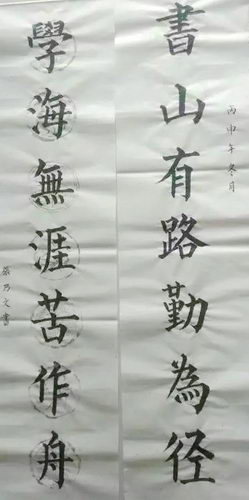 書山有路勤為径
丙申年冬月
學海無涯苦作舟
張乃文書